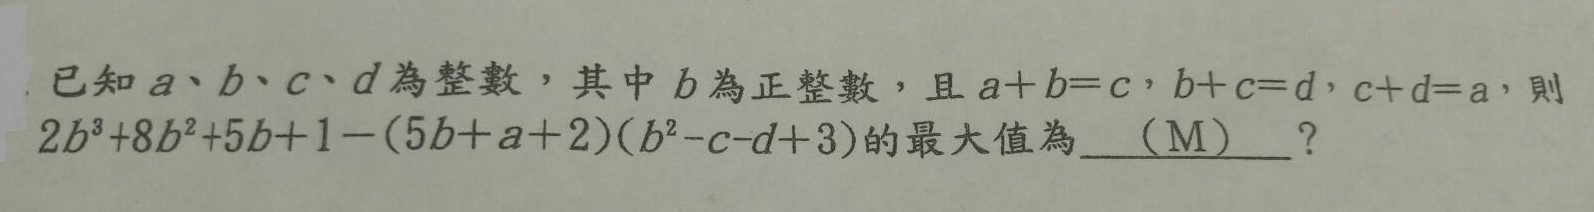 已知 a、b、c、d 為整數，其中 b 為正整數，且 a+b=c，b+c=d，c+d=a，則
2b³+8b²+5b+1-(5b+a+2)(b²-c-d+3)的最大值為 （M） ？